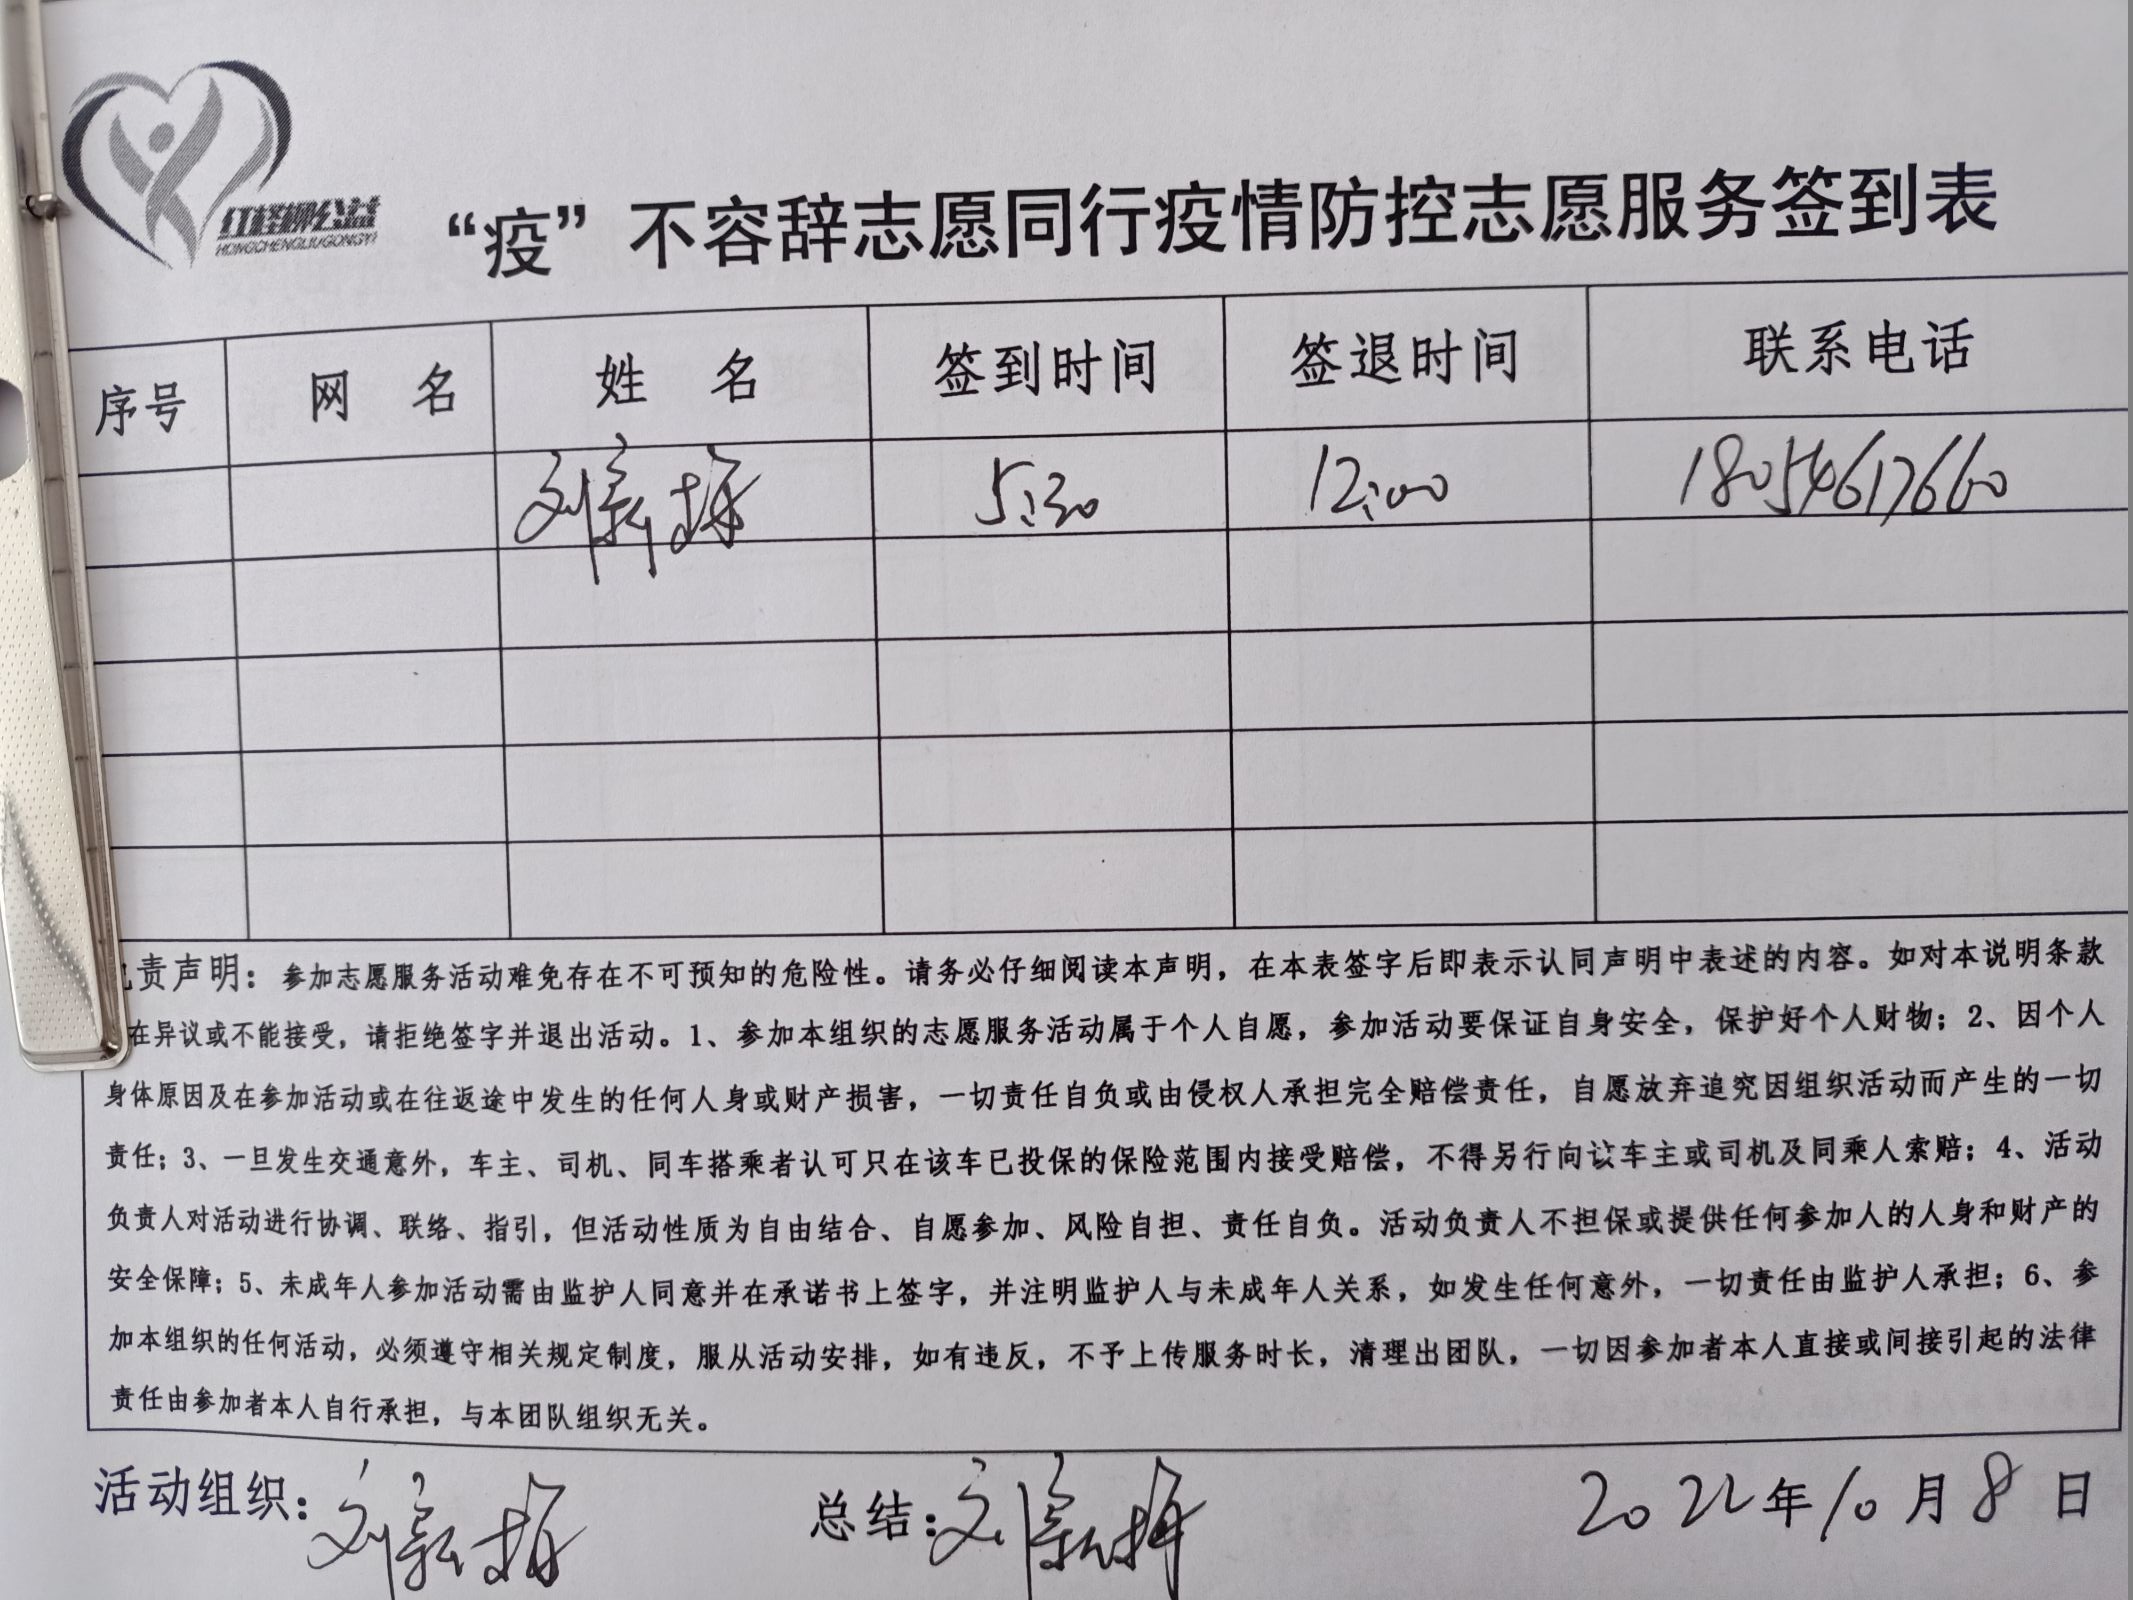 红柽柳公益
HONGCHENGLIUGONGYI
“疫”不容辞志愿同行疫情防控志愿服务签到表
序号 网 名 姓 名 签到时间 签退时间 联系电话
刘 5:30 12:00 18054617660
责声明：参加志愿服务活动难免存在不可预知的危险性。请务必仔细阅读本声明，在本表签字后即表示认同声明中表述的内容。如对本说明条款
在异议或不能接受，请拒绝签字并退出活动。1、参加本组织的志愿服务活动属于个人自愿，参加活动要保证自身安全，保护好个人财物；2、因个人
身体原因及在参加活动或在往返途中发生的任何人身或财产损害，一切责任自负或由侵权人承担完全赔偿责任，自愿放弃追究因组织活动而产生的一切
责任；3、一旦发生交通意外，车主、司机、同车搭乘者认可只在该车已投保的保险范围内接受赔偿，不得另行向该车主或司机及同乘人索赔；4、活动
负责人对活动进行协调、联络、指引，但活动性质为自由结合、自愿参加、风险自担、责任自负。活动负责人不担保或提供任何参加人的人身和财产的
安全保障；5、未成年人参加活动需由监护人同意并在承诺书上签字，并注明监护人与未成年人关系，如发生任何意外，一切责任由监护人承担；6、参
加本组织的任何活动，必须遵守相关规定制度，服从活动安排，如有违反，不予上传服务时长，清理出团队，一切因参加者本人直接或间接引起的法律
责任由参加者本人自行承担，与本团队组织无关。
活动组织：刘 总结：刘 2022年10月8日